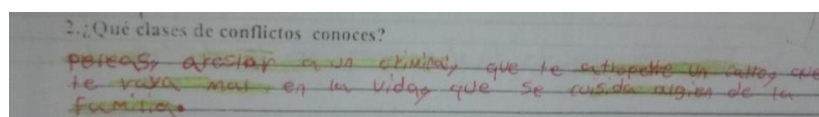 2.¿Qué clases de conflictos conoces?
peleas, arestar a un criminal, que te atropelle un carro, que
te vaya mal, en la vida, que se cuisida algien de la
familia.